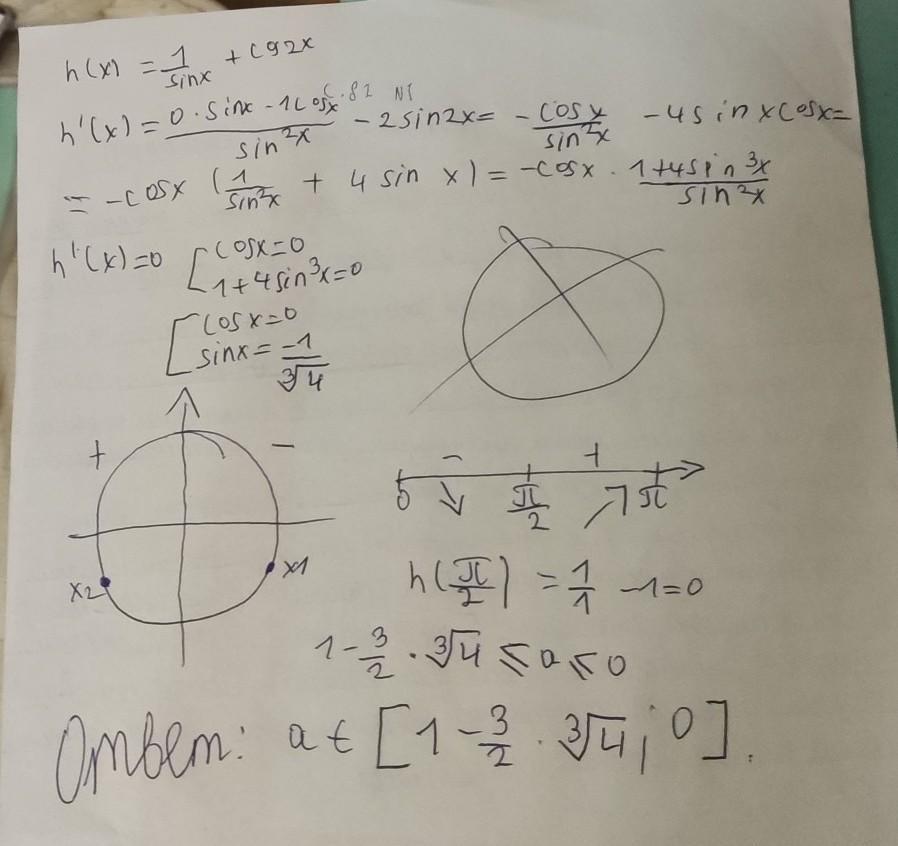 h(x) = 1/sinx + cos2x
h'(x) = (0·sinx - 1cosx)/sin²x - 2sin2x = -cosx/sin²x - 4sinxcosx=
= -cosx (1/sin²x + 4 sin x) = -cosx · (1+4sin³x)/sin²x
h'(x)=0 [cosx=0
1+4sin³x=0
[cosx=0
sinx = -1/∛4
+ -
x2 x1
- +
0 π/2 π
h(π/2) = 1/1 -1=0
1-3/2 · ∛4 ⩽ a ⩽ 0
Ответ: a ∈ [1-3/2 · ∛4; 0].